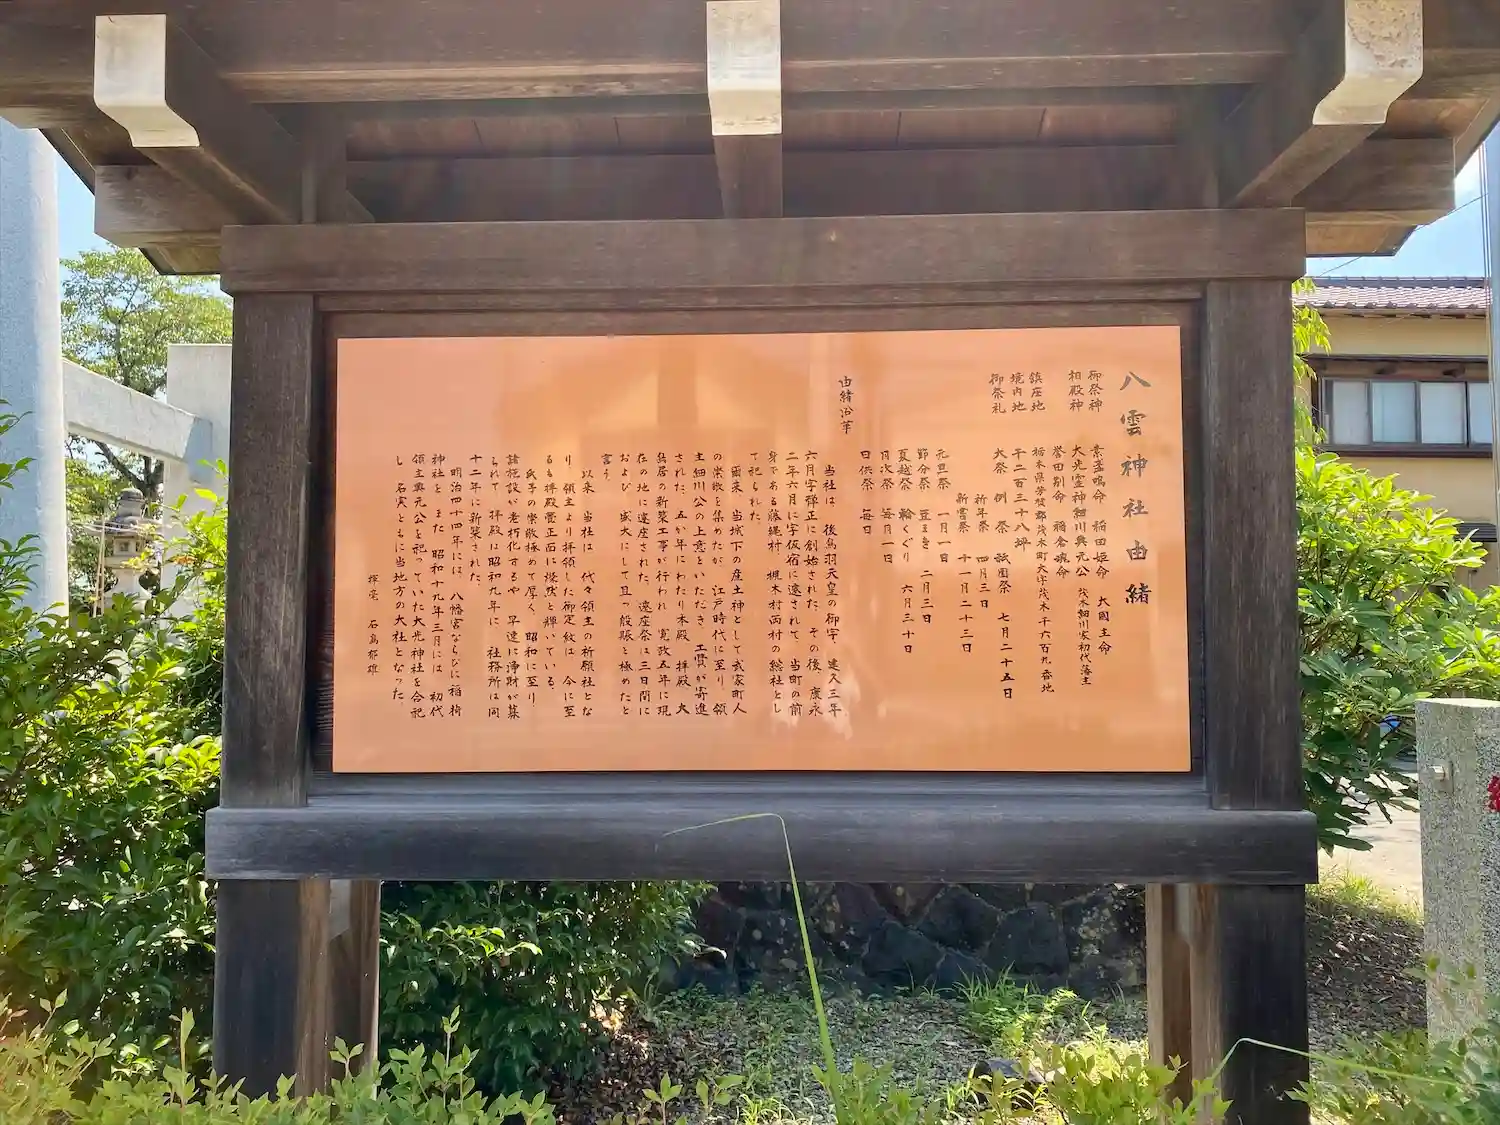 八雲神社由緒
御祭神 素盞嗚命 稲田姫命 大國主命
誉田別命 稲倉魂命
相殿神 大光霊神細川興元公 茂木細川家初代藩主
鎮座地 栃木県芳賀郡茂木町大字茂木千六百九番地
境内地 千二百三十八坪
御祭礼 大祭 例祭 祇園祭 七月二十五日
祈年祭 四月三日
新嘗祭 十一月二十三日
元旦祭 一月一日
節分祭 豆まき 二月三日
夏越祭 輪くぐり 六月三十日
月次祭 毎月一日
日供祭 毎日
由緒沿革
当社は、後鳥羽天皇の御宇、建久三年
六月字弾正に創始された。その後、康永
二年六月に字仮宿に遷されて、当町の前
身である藤縄村、槻木村両村の総社とし
て祀られた。
爾来、当城下の産土神として武家町人
の崇敬を集めたが、江戸時代に至り、領
主細川公の上意といただき、工費が寄進
された。五か年にわたり本殿、拝殿、大
鳥居の新築工事が行われ、寛政五年に現
在の地に遷座された。遷座祭は三日間に
および、盛大にして且つ殷賑と極めたと
言う。
以来、当社は、代々領主の祈願社とな
り、領主より拝領した御定紋は、今に至
るも拝殿甍正面に燦然と輝いている。
氏子の崇敬極めて厚く、昭和に至り、
諸施設が老朽化するや、早速に浄財が募
られて、拝殿は昭和九年に、社務所は同
十二年に新築された。
明治四十四年には、八幡宮ならびに稲荷
神社を、また、昭和十九年三月には、初代
領主興元公を祀っていた大光神社を合祀
し、名実ともに当地方の大社となった。
揮毫 石島郁雄